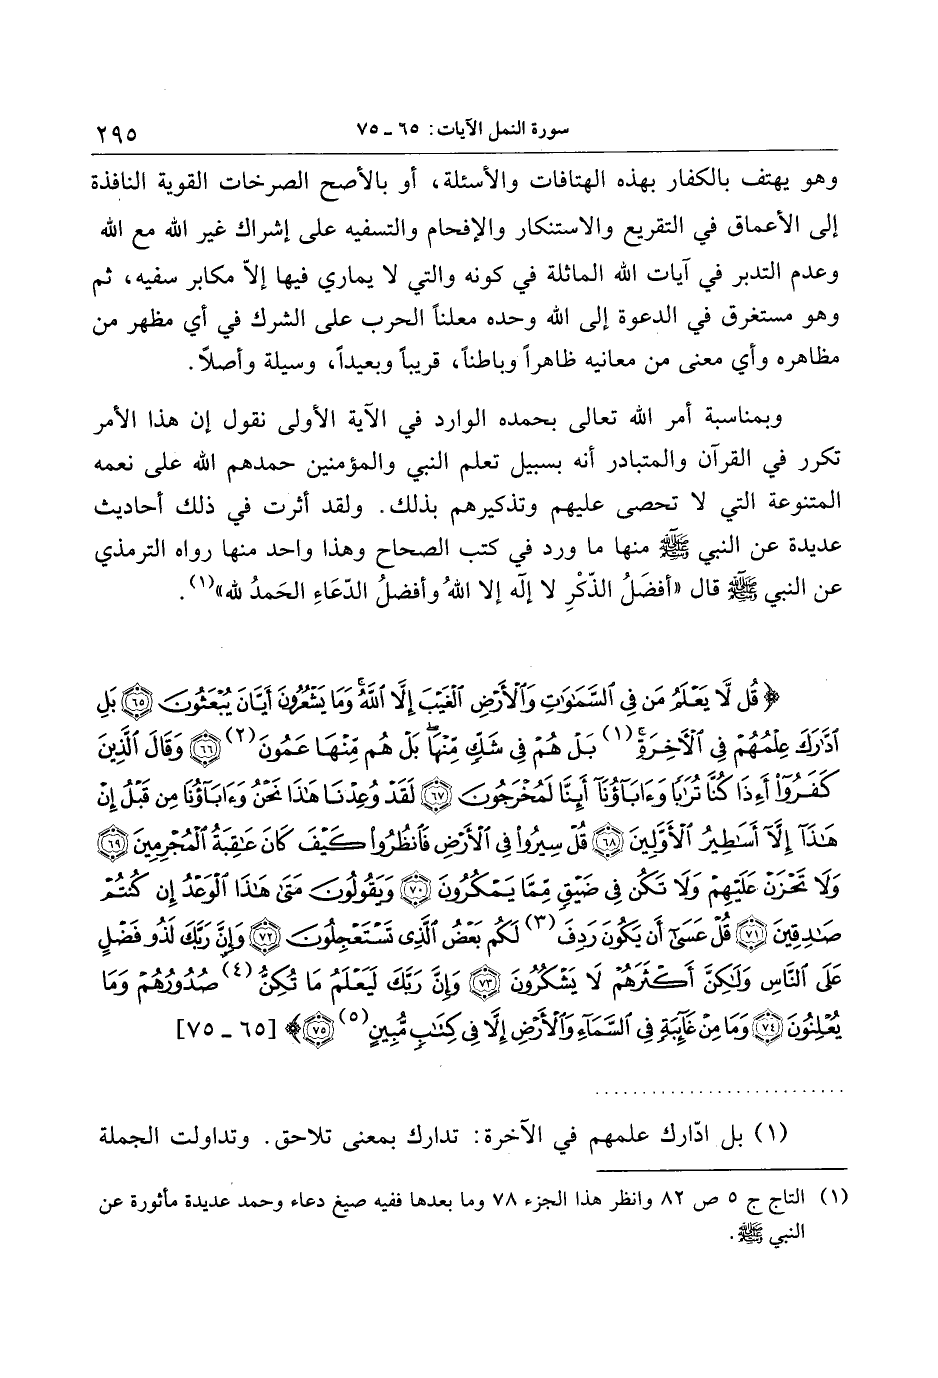 سورة النمل الآيات: ٦٥ ـ ٧٥ ٢٩٥
وهو يهتف بالكفار بهذه الهتافات والأسئلة، أو بالأصح الصرخات القوية النافذة
إلى الأعماق في التقريع والاستنكار والإفحام والتسفيه على إشراك غير الله مع الله
وعدم التدبر في آيات الله الماثلة في كونه والتي لا يماري فيها إلاّ مكابر سفيه، ثم
وهو مستغرق في الدعوة إلى الله وحده معلناً الحرب على الشرك في أي مظهر من
مظاهره وأي معنى من معانيه ظاهراً وباطناً، قريباً وبعيداً، وسيلة وأصلاً.
وبمناسبة أمر الله تعالى بحمده الوارد في الآية الأولى نقول إن هذا الأمر
تكرر في القرآن والمتبادر أنه بسبيل تعلم النبي والمؤمنين حمدهم الله على نعمه
المتنوعة التي لا تحصى عليهم وتذكيرهم بذلك. ولقد أثرت في ذلك أحاديث
عديدة عن النبي ﷺ منها ما ورد في كتب الصحاح وهذا واحد منها رواه الترمذي
عن النبي ﷺ قال «أفضَلُ الذّكْرِ لا إلَه إلا اللهُ وأفضلُ الدّعَاءِ الحَمدُ لله»(١).
﴿ قُل لَّا يَعْلَمُ مَن فِي السَّمَٰوَٰتِ وَالْأَرْضِ الْغَيْبَ إِلَّا اللَّهُ ۚ وَمَا يَشْعُرُونَ أَيَّانَ يُبْعَثُونَ ٦٥ بَلِ
ادَّارَكَ عِلْمُهُمْ فِي الْآخِرَةِ ۚ (١) بَلْ هُمْ فِي شَكٍّ مِّنْهَا ۖ بَلْ هُم مِّنْهَا عَمُونَ (٢) ٦٦ وَقَالَ الَّذِينَ
كَفَرُوٓا أَءِذَا كُنَّا تُرَٰبًا وَءَابَآؤُنَآ أَئِنَّا لَمُخْرَجُونَ ٦٧ لَقَدْ وُعِدْنَا هَٰذَا نَحْنُ وَءَابَآؤُنَا مِن قَبْلُ إِنْ
هَٰذَآ إِلَّآ أَسَٰطِيرُ الْأَوَّلِينَ ٦٨ قُلْ سِيرُوا فِي الْأَرْضِ فَانظُرُوا كَيْفَ كَانَ عَٰقِبَةُ الْمُجْرِمِينَ ٦٩
وَلَا تَحْزَنْ عَلَيْهِمْ وَلَا تَكُن فِي ضَيْقٍ مِّمَّا يَمْكُرُونَ ٧٠ وَيَقُولُونَ مَتَىٰ هَٰذَا الْوَعْدُ إِن كُنتُمْ
صَٰدِقِينَ ٧١ قُلْ عَسَىٰٓ أَن يَكُونَ رَدِفَ (٣) لَكُم بَعْضُ الَّذِي تَسْتَعْجِلُونَ ٧٢ وَإِنَّ رَبَّكَ لَذُو فَضْلٍ
عَلَى النَّاسِ وَلَٰكِنَّ أَكْثَرَهُمْ لَا يَشْكُرُونَ ٧٣ وَإِنَّ رَبَّكَ لَيَعْلَمُ مَا تُكِنُّ (٤) صُدُورُهُمْ وَمَا
يُعْلِنُونَ ٧٤ وَمَا مِنْ غَآئِبَةٍ فِي السَّمَآءِ وَالْأَرْضِ إِلَّا فِي كِتَٰبٍ مُّبِينٍ (٥) ٧٥ ﴾ [٦٥ ـ ٧٥]
(١) بل ادّارك علمهم في الآخرة: تدارك بمعنى تلاحق. وتداولت الجملة
(١) التاج ج ٥ ص ٨٢ وانظر هذا الجزء ٧٨ وما بعدها ففيه صيغ دعاء وحمد عديدة مأثورة عن
النبي ﷺ.